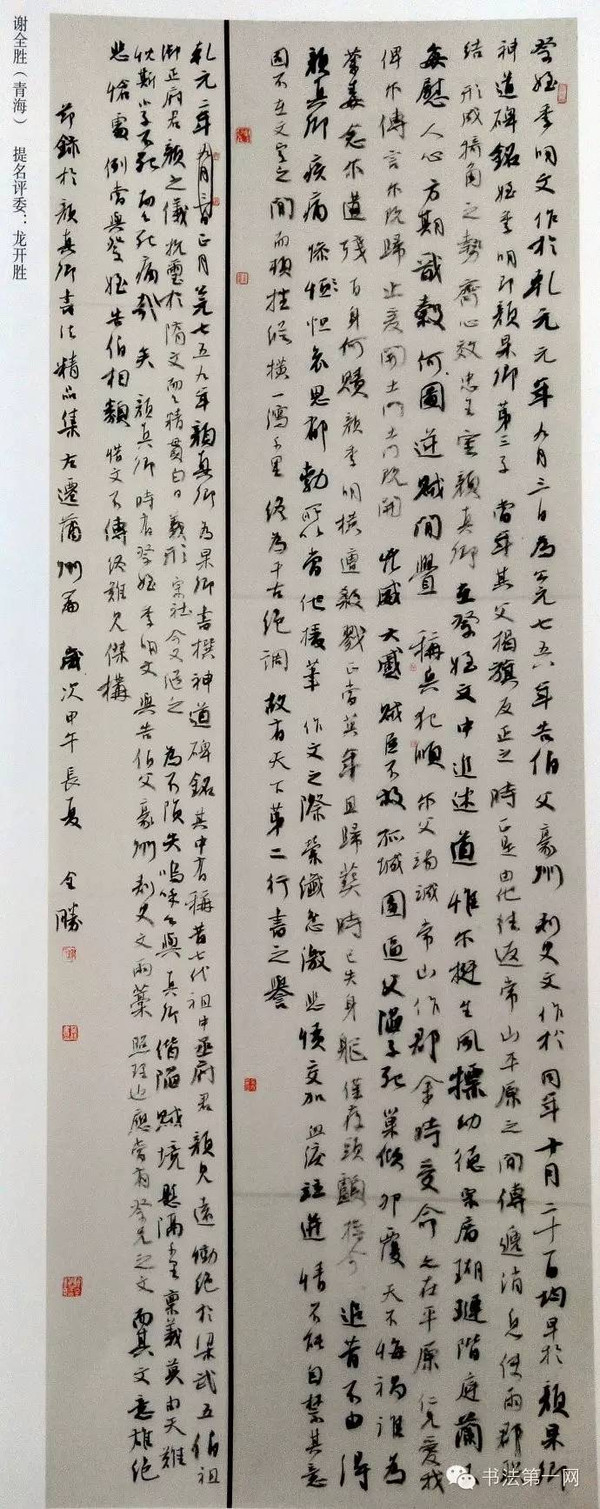 祭姪季明文作於乾元元年九月三日為公元七五八年告伯父豪州刺史文作於同年十月二十百均早於顏杲卿
神道碑銘姪季明即顏杲卿第三子當年其父揭旗反正之時正是由他往返常山平原之間傳遞消息使兩郡聯
結形成犄角之勢齊心效忠王室顏真卿在祭姪文中追述道惟爾挺生夙標幼德宗廟瑚璉階庭蘭玉
每慰人心方期戩穀何圖逆賊間釁稱兵犯順爾父竭誠常山作郡余時受命亦在平原仁兄愛我
俾爾傳言爾既歸止爰開土門土門既開凶威大蹙賊臣不救孤城圍逼父陷子死巢傾卵覆天不悔禍誰為
荼毒念爾遘殘百身何贖顏季明橫遭殺戮正當英年且歸葬時已失身軀僅存頭顱撫今追昔不由得
顏真卿疾痛慘怛哀思鬱勃所以當他援筆作文之際縈紆忿激悲憤交加血淚註迸情不能自禁其意
固不在文字之間而頓挫縱橫一瀉千里終為千古絕調故有天下第二行書之譽
乾元二年九月三日正月公元七五九年顏真卿為杲卿書撰神道碑銘其中有稱昔七代祖中丞府君顏見遠慟絕於梁武五伯祖
御正府君顏之儀抗璽於隋文而今精貫白日義形宗社今又繼之為不隕失嗚呼公與真卿偕陷賊境懸隔千里稟義莫由天難
忱斯小子不死而公死痛哉矣顏真卿時有祭姪季明文與告伯父豪州刺史文兩藁照理也應當有祭兄之文而其文意雄絕
悲愴處倒當與祭姪告伯相類惜文不傳終難見傑構
節錄於顏真卿書法精品集左遷蒲州篇歲次甲午長夏全勝
谢全胜（青海） 提名评委：龙开胜
书法第一网